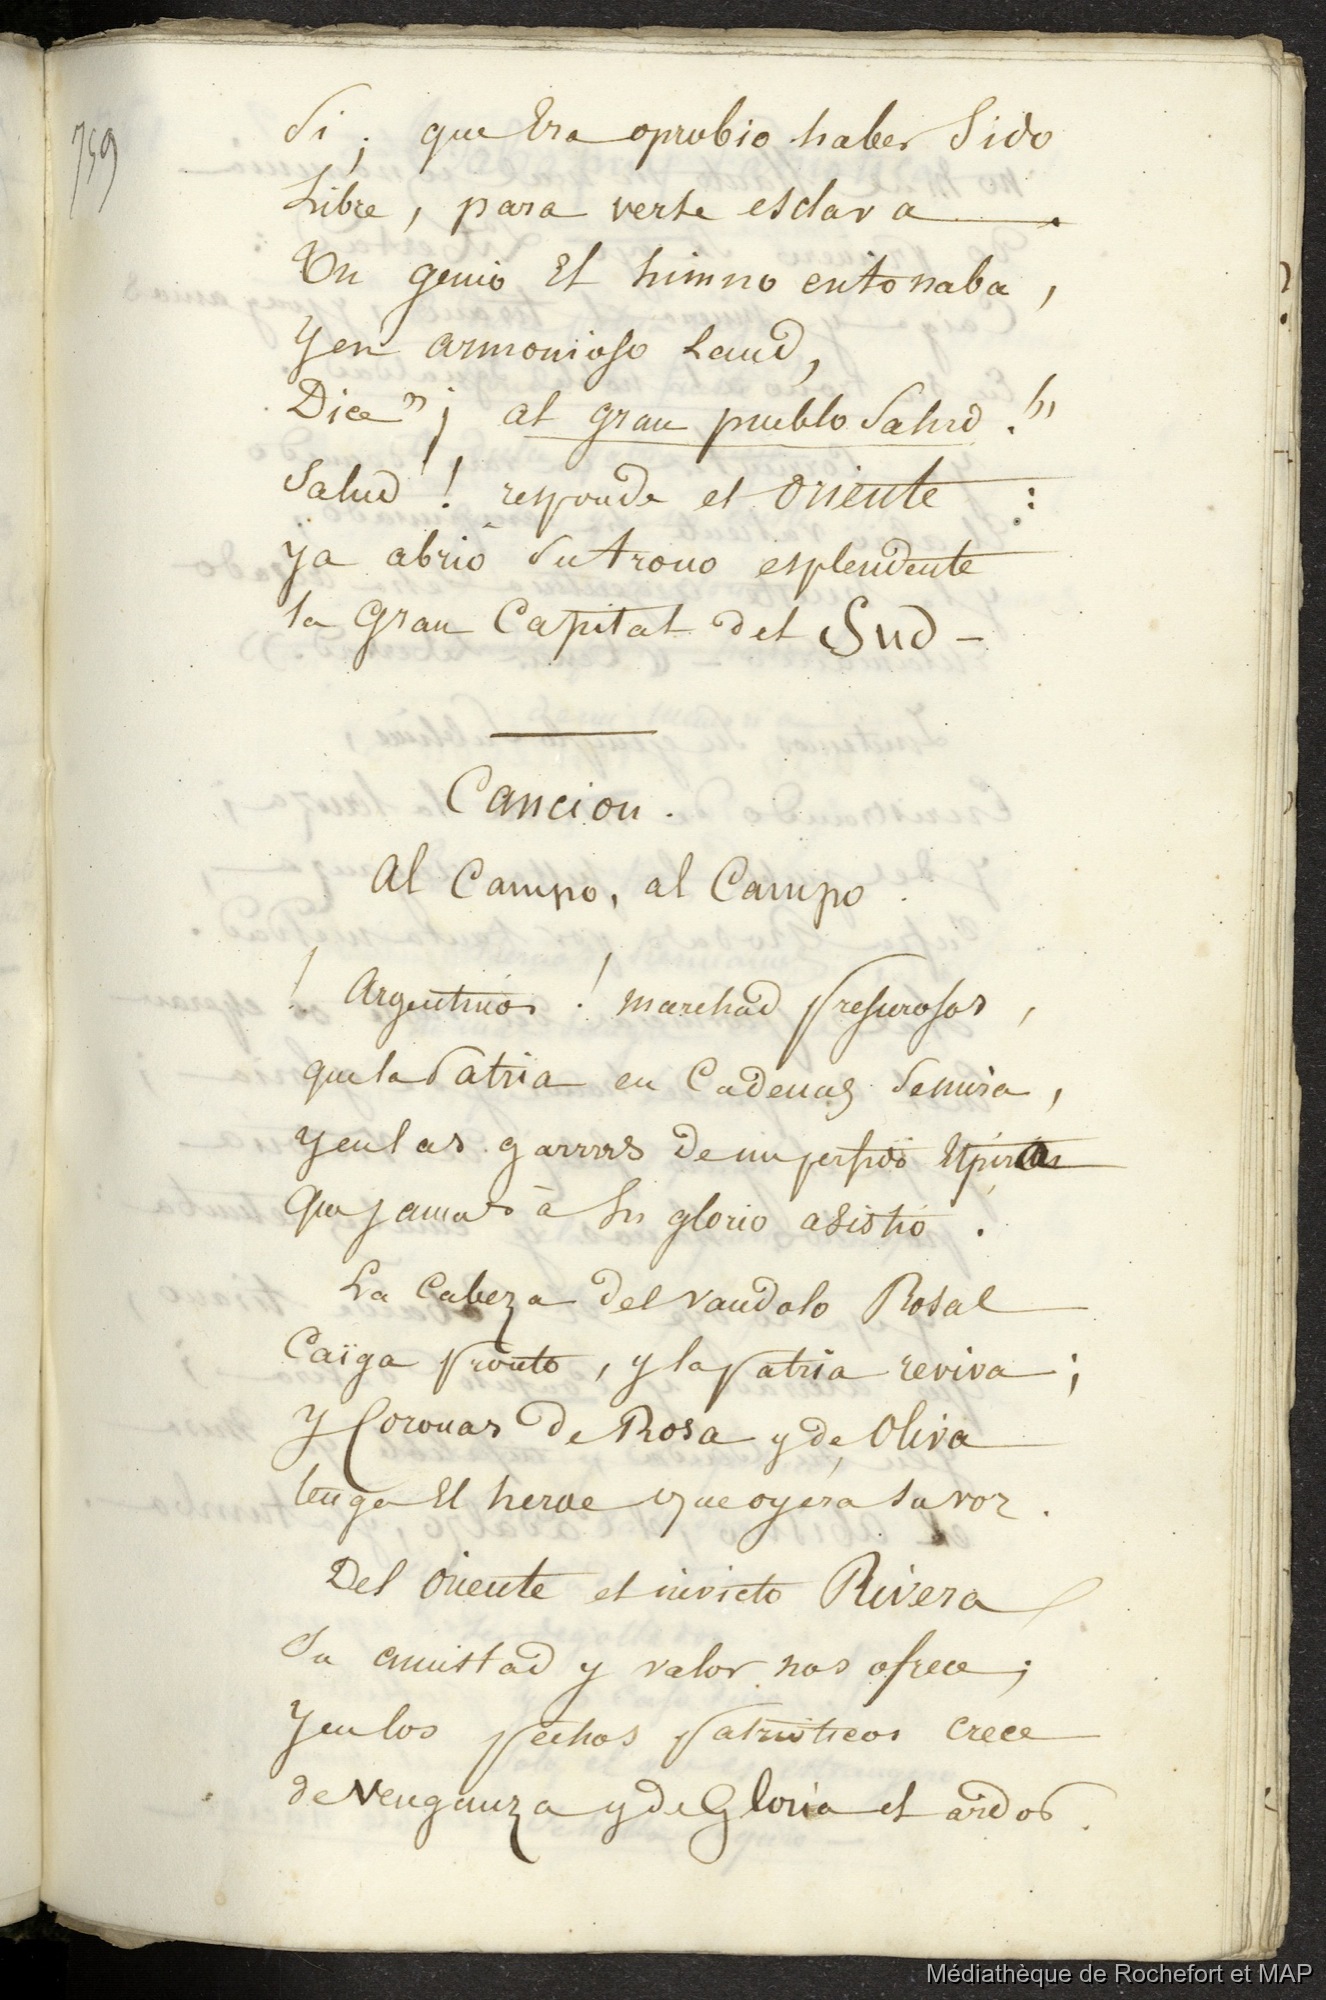 759
Si, que Era oprobio haber Sido
Libre, para verte esclava.
Un genio El himno entonaba,
Y en armonioso Laud,
Dice " ¡ al gran pueblo Salud ! "
Salud ! responde el Oriente :
ya abrio Su trono esplendente
la Gran Capital del Sud -
Cancion.
Al Campo, al Campo.
! Argentinos ! marchad presurosos,
que la Patria en Cadenas Se mira,
Y en las garras de un perfido
Que jamas à Su gloria asistió.
La Cabeza del vandalo Rosal
Caïga pronto, y la patria reviva ;
Y Coronas de Rosa y de Oliva
tenga El heroe que oyera Su voz.
Del Oriente el invicto Rivera
Su amistad y valor nos ofrece ;
Y en los pechos patrioticos crece
de Venganza y de Gloria el ardor.
Médiathèque de Rochefort et MAP